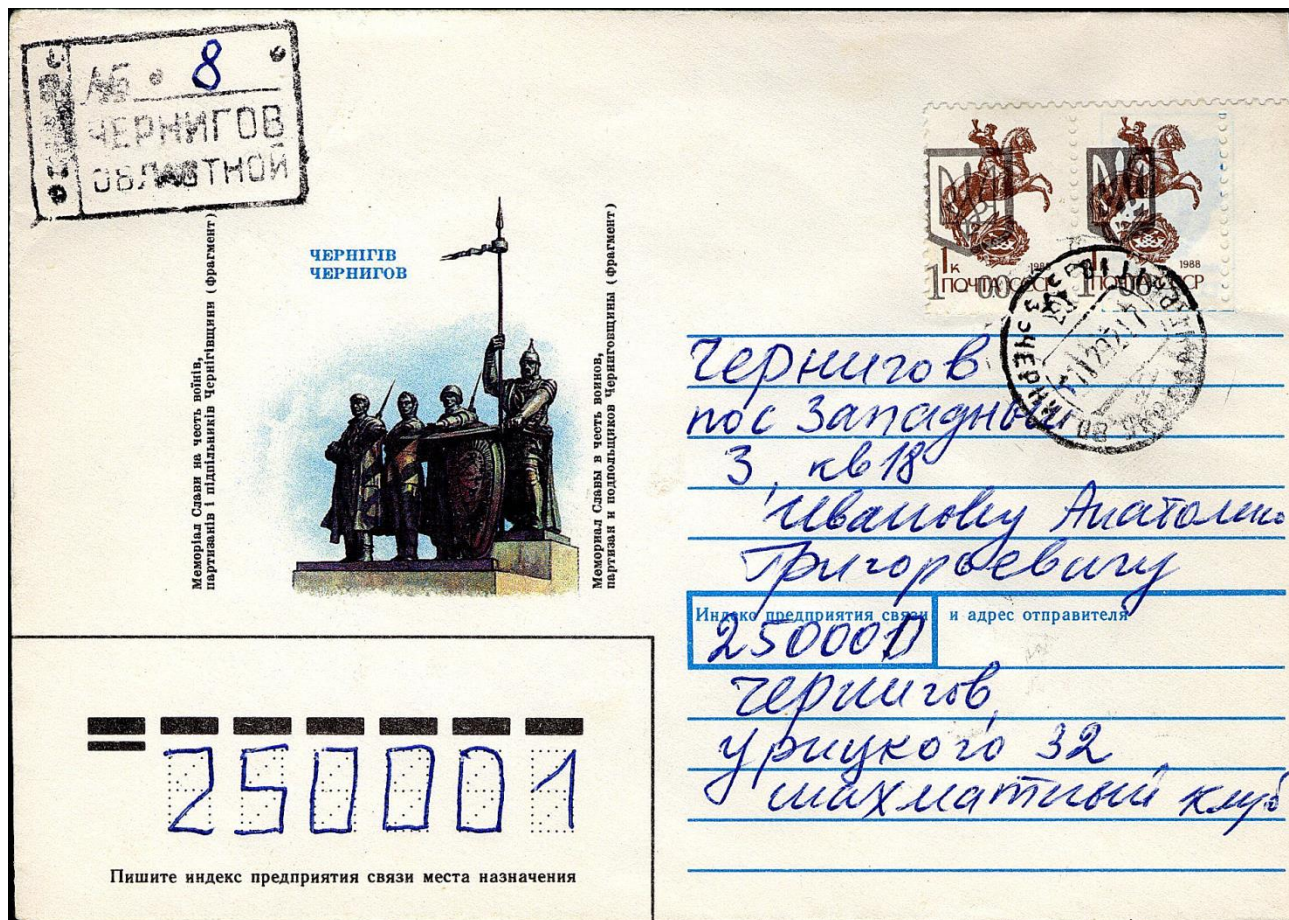 № 8
ЧЕРНИГОВ
ОБЛАСТНОЙ
ЧЕРНІГІВ
ЧЕРНИГОВ
Меморіал Слави на честь воїнів,
партизанів і підпільників Чернігівщини (фрагмент)
Мемориал Славы в честь воинов,
партизан и подпольщиков Черниговщины (фрагмент)
1к 1988
ПОЧТА СССР
1 00
1к 1988
ПОЧТА СССР
1 00
Чернигов
пос Западный
3, кв 18
Иванову Анатолию
Григорьевичу
Индекс предприятия связи и адрес отправителя
250000
Чернигов,
Урицкого 32
шахматный клуб
250001
Пишите индекс предприятия связи места назначения